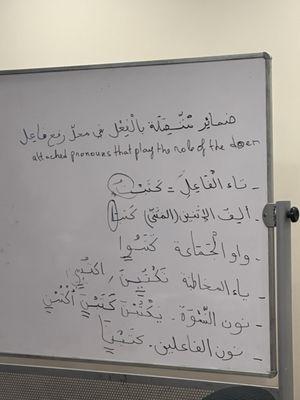 ضمائر مُتَّصِلَة بالْفِعْل في محلّ رفع فاعِل
attached pronouns that play the role of the doer
- تاء الْفَاعِل = كَتَبْتُ
- ألِف الإثنين (المثنّى) كَتَبَا
- واو الْجَمَاعة كَتَبُوا
- ياء المخاطبة تَكْتُبِينَ / اكتُبِي
- نون النِّسْوَة . يَكْتُبْنَ كَتَبْنَ اُكْتُبْنَ
- نون الفاعلين . كَتَبْنَا